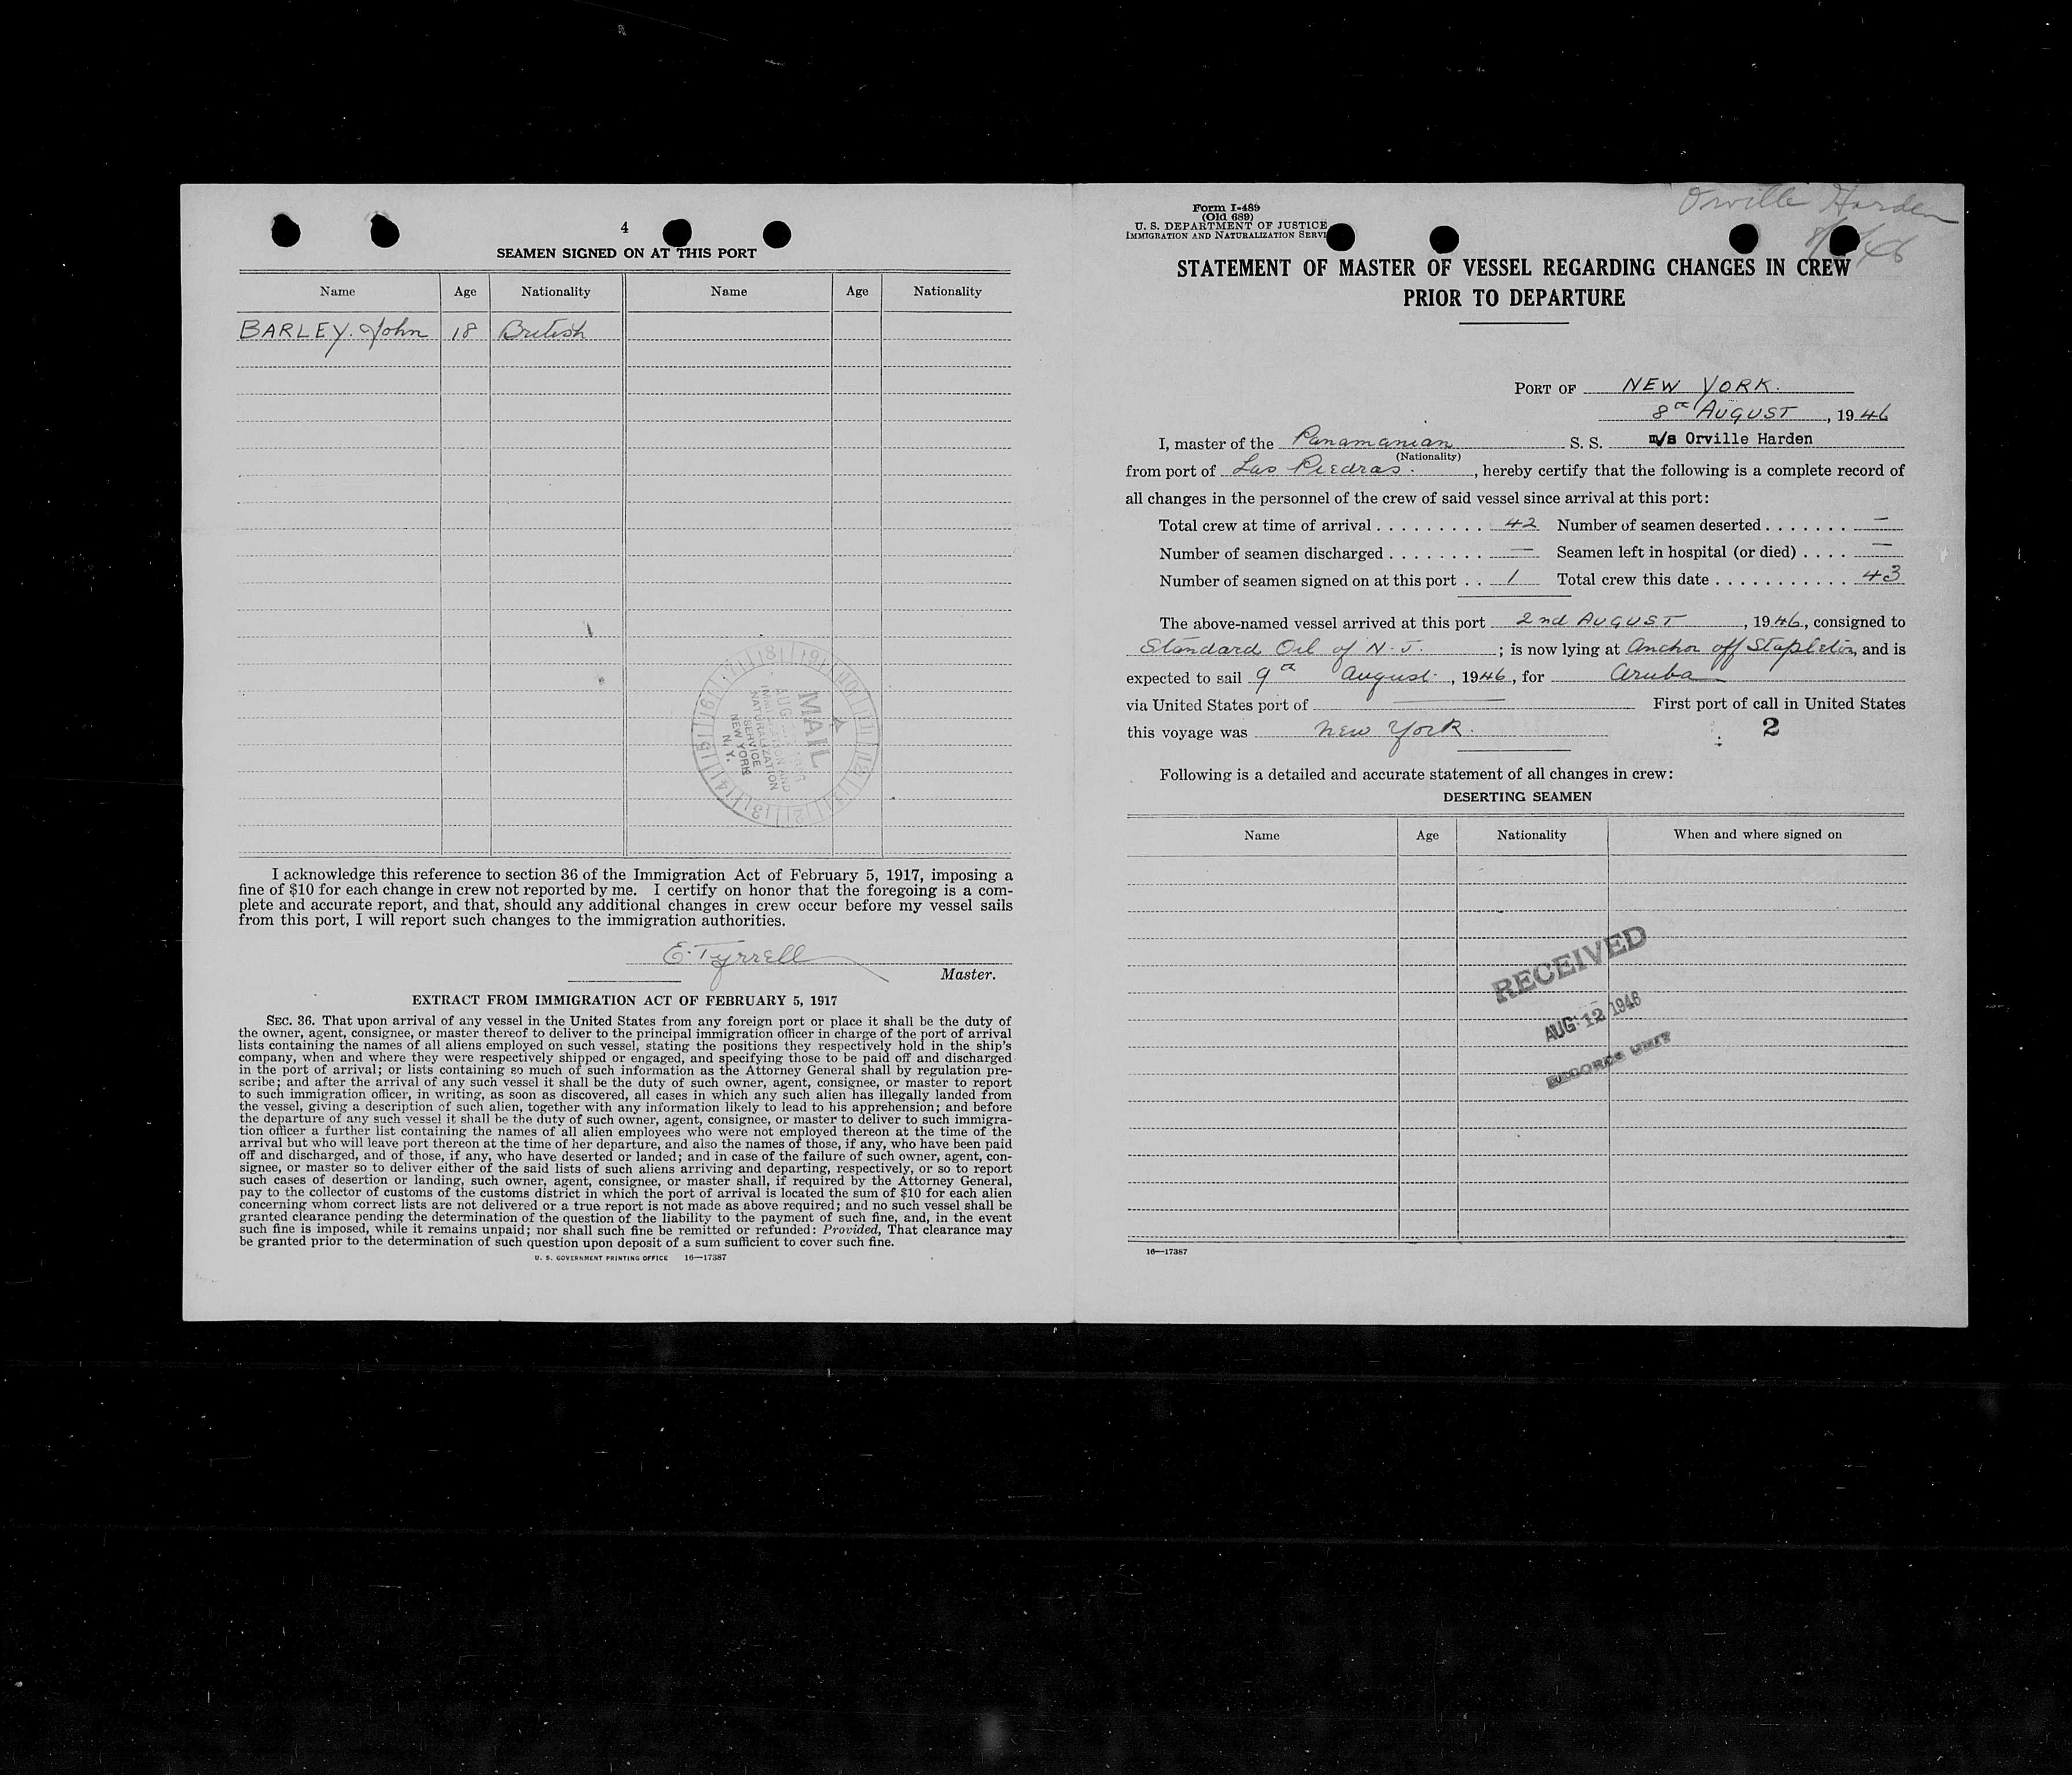 4
SEAMEN SIGNED ON AT THIS PORT
Name Age Nationality Name Age Nationality
BARLEY. John 18 British
MAIL
AUG
IMMIGRATION AND
NATURALIZATION
SERVICE
NEW YORK
N. Y.
I acknowledge this reference to section 36 of the Immigration Act of February 5, 1917, imposing a
fine of $10 for each change in crew not reported by me. I certify on honor that the foregoing is a com-
plete and accurate report, and that, should any additional changes in crew occur before my vessel sails
from this port, I will report such changes to the immigration authorities.
E. Tyrrell
Master.
EXTRACT FROM IMMIGRATION ACT OF FEBRUARY 5, 1917
SEC. 36. That upon arrival of any vessel in the United States from any foreign port or place it shall be the duty of
the owner, agent, consignee, or master thereof to deliver to the principal immigration officer in charge of the port of arrival
lists containing the names of all aliens employed on such vessel, stating the positions they respectively hold in the ship's
company, when and where they were respectively shipped or engaged, and specifying those to be paid off and discharged
in the port of arrival; or lists containing so much of such information as the Attorney General shall by regulation pre-
scribe; and after the arrival of any such vessel it shall be the duty of such owner, agent, consignee, or master to report
to such immigration officer, in writing, as soon as discovered, all cases in which any such alien has illegally landed from
the vessel, giving a description of such alien, together with any information likely to lead to his apprehension; and before
the departure of any such vessel it shall be the duty of such owner, agent, consignee, or master to deliver to such immigra-
tion officer a further list containing the names of all alien employees who were not employed thereon at the time of the
arrival but who will leave port thereon at the time of her departure, and also the names of those, if any, who have been paid
off and discharged, and of those, if any, who have deserted or landed; and in case of the failure of such owner, agent, con-
signee, or master so to deliver either of the said lists of such aliens arriving and departing, respectively, or so to report
such cases of desertion or landing, such owner, agent, consignee, or master shall, if required by the Attorney General,
pay to the collector of customs of the customs district in which the port of arrival is located the sum of $10 for each alien
concerning whom correct lists are not delivered or a true report is not made as above required; and no such vessel shall be
granted clearance pending the determination of the question of the liability to the payment of such fine, and, in the event
such fine is imposed, while it remains unpaid; nor shall such fine be remitted or refunded: Provided, That clearance may
be granted prior to the determination of such question upon deposit of a sum sufficient to cover such fine.
U. S. GOVERNMENT PRINTING OFFICE 16—17387
Orville Harden
Form I-489
(Old 689)
U. S. DEPARTMENT OF JUSTICE
IMMIGRATION AND NATURALIZATION SERVI
STATEMENT OF MASTER OF VESSEL REGARDING CHANGES IN CREW
PRIOR TO DEPARTURE
PORT OF NEW YORK.
8th AUGUST, 1946
I, master of the Panamanian S. S. m/s Orville Harden
(Nationality)
from port of Las Piedras., hereby certify that the following is a complete record of
all changes in the personnel of the crew of said vessel since arrival at this port:
Total crew at time of arrival . . . . . . . . . 42 Number of seamen deserted . . . . . . . —
Number of seamen discharged . . . . . . . . — Seamen left in hospital (or died) . . . . —
Number of seamen signed on at this port . . 1 Total crew this date . . . . . . . . . . . 43
The above-named vessel arrived at this port 2nd AUGUST, 1946, consigned to
Standard Oil of N. J. ; is now lying at Anchor off Stapleton, and is
expected to sail 9th August., 1946, for Aruba
via United States port of — First port of call in United States
this voyage was New York. 2
Following is a detailed and accurate statement of all changes in crew:
DESERTING SEAMEN
Name Age Nationality When and where signed on
RECEIVED
AUG 12 1946
RECORDS UNIT
16—17387